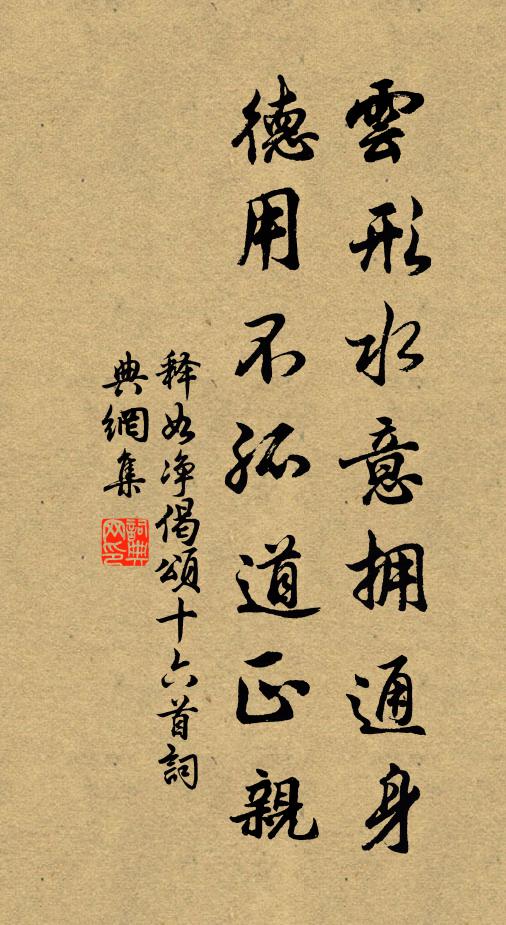 雲形水意拥通身
德用不孤道正親
释如净偈頌十六首詞
典網集
詞典网印